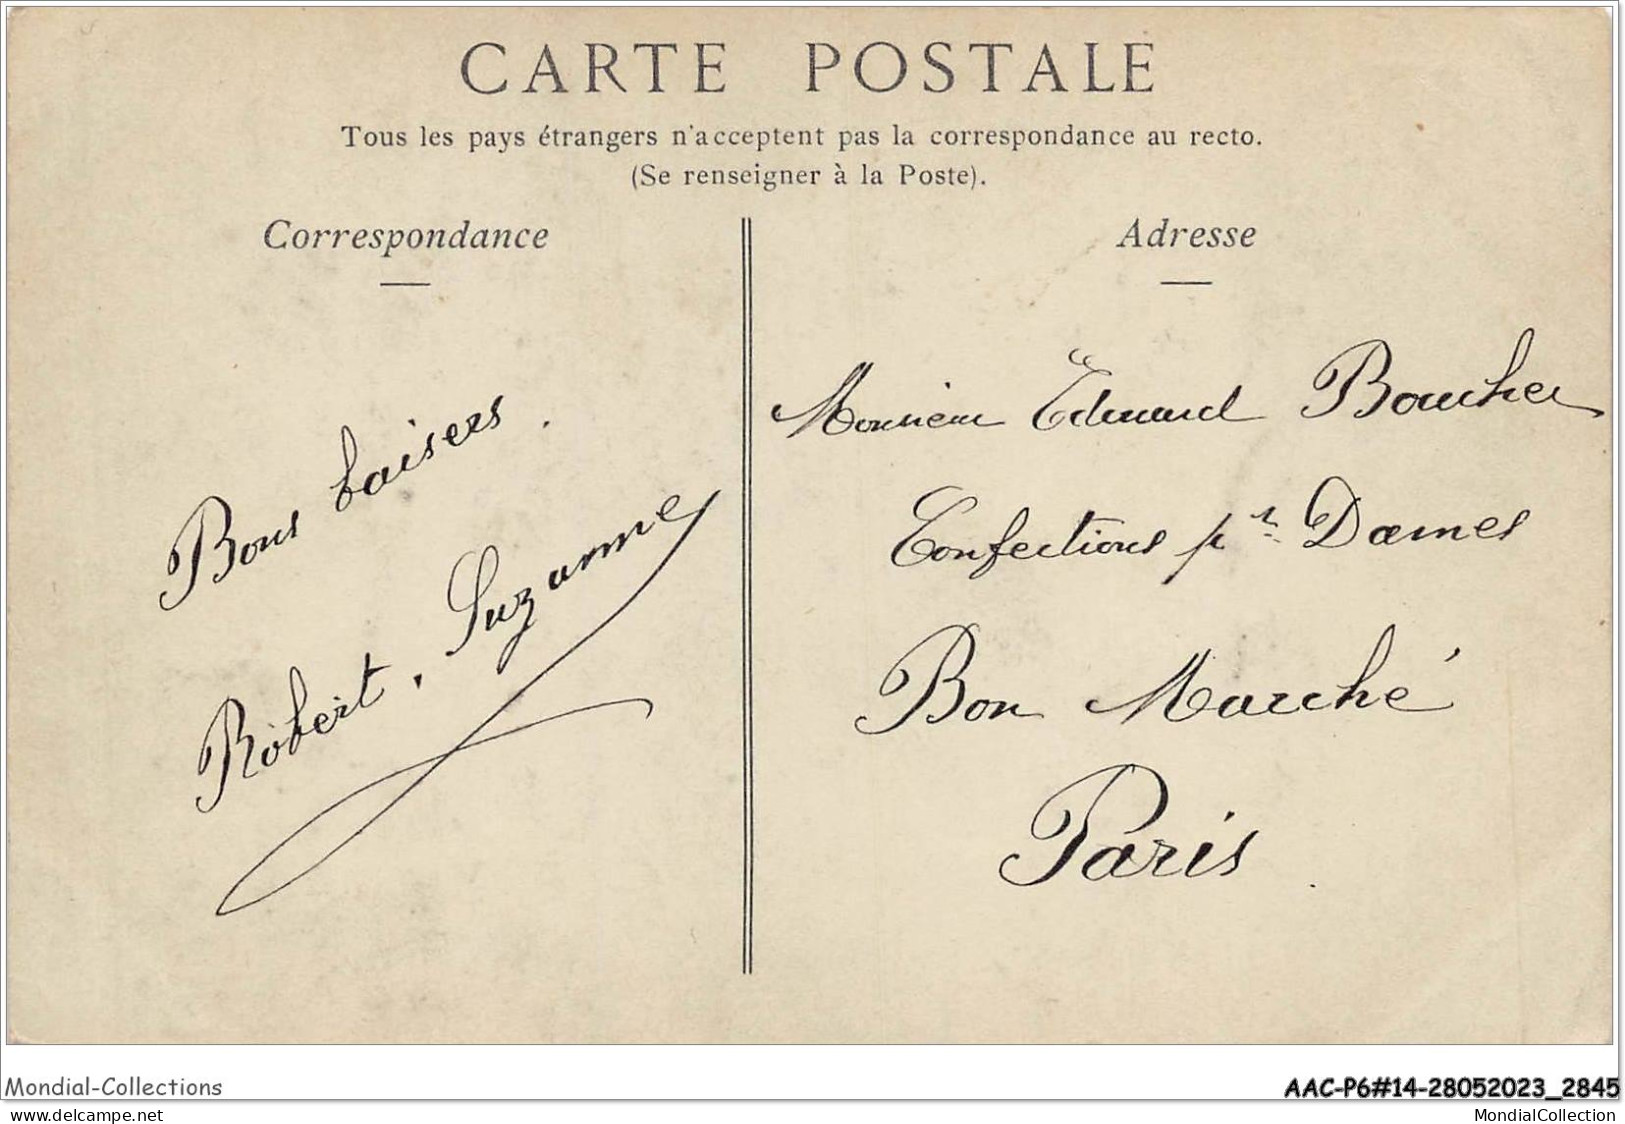 CARTE POSTALE
Tous les pays étrangers n'acceptent pas la correspondance au recto.
(Se renseigner à la Poste).
Correspondance
Bons baisers.
Robert. Suzanne
Adresse
Monsieur Edouard Boucher
Confections pr Dames
Bon Marché
Paris
Mondial-Collections
AAC-P6#14-28052023_2845
www.delcampe.net
MondialCollection